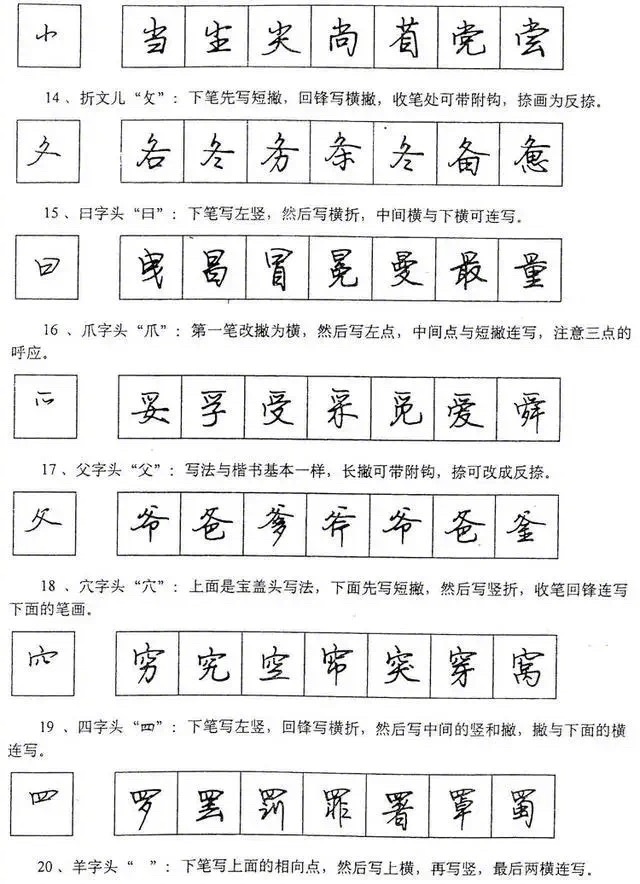 ⺌ 当 尘 尖 尚 党 尝
14、折文儿“攵”：下笔先写短撇，回锋写横撇，收笔处可带附钩，捺画为反捺。
夂 各 冬 务 条 冬 备 惫
15、曰字头“曰”：下笔写左竖，然后写横折，中间横与下横可连写。
曰 曳 昌 冒 冕 曼 最 量
16、爪字头“爪”：第一笔改撇为横，然后写左点，中间点与短撇连写，注意三点的
呼应。
爫 妥 孚 受 采 觅 爱 舜
17、父字头“父”：写法与楷书基本一样，长撇可带附钩，捺可改成反捺。
父 爷 爸 爹 斧 爷 爸 釜
18、穴字头“穴”：上面是宝盖头写法，下面先写短撇，然后写竖折，收笔回锋连写
下面的笔画。
穴 穷 究 空 帘 突 穿 窝
19、四字头“四”：下笔写左竖，回锋写横折，然后写中间的竖和撇，撇与下面的横
连写。
四 罗 罢 罚 罪 署 罩 蜀
20、羊字头“ ”：下笔写上面的相向点，然后写上横，再写竖，最后两横连写。